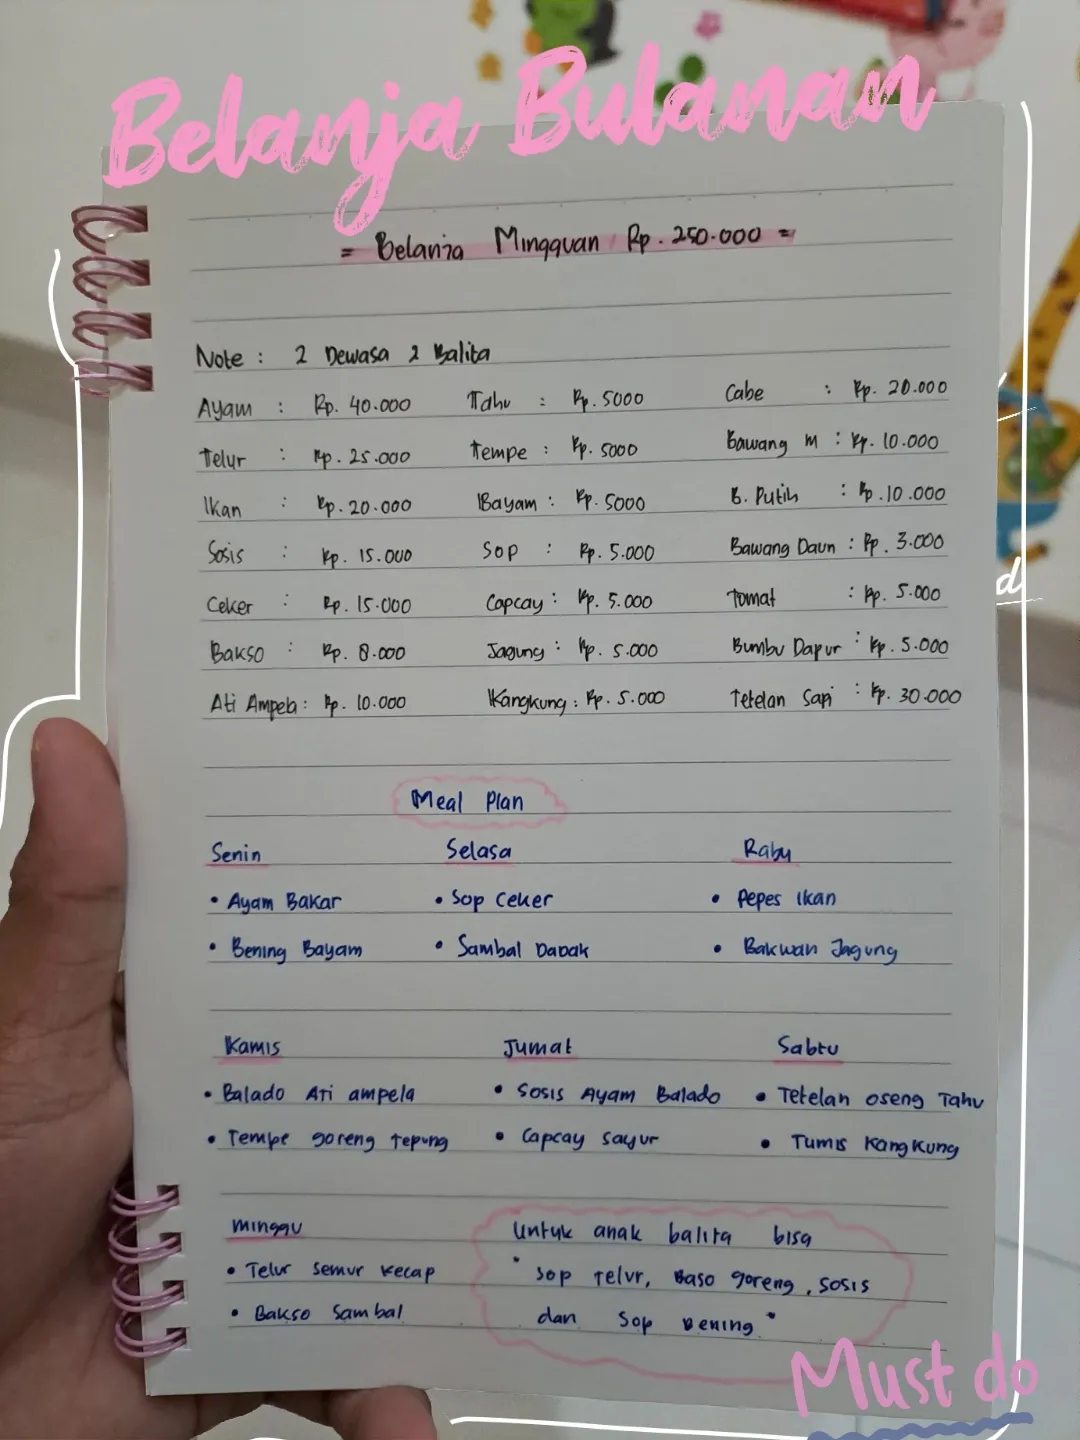 Belanja Bulanan
= Belanja Mingguan Rp. 250.000 =
Note : 2 Dewasa 2 Balita
Ayam : Rp. 40.000 Tahu : Rp. 5000 Cabe : Rp. 20.000
Telur : Rp. 25.000 Tempe : Rp. 5000 Bawang M : Rp. 10.000
Ikan : Rp. 20.000 Bayam : Rp. 5000 B. Putih : Rp. 10.000
Sosis : Rp. 15.000 Sop : Rp. 5.000 Bawang Daun : Rp. 3.000
Ceker : Rp. 15.000 Capcay : Rp. 5.000 Tomat : Rp. 5.000
Bakso : Rp. 8.000 Jagung : Rp. 5.000 Bumbu Dapur : Rp. 5.000
Ati Ampela : Rp. 10.000 Kangkung : Rp. 5.000 Tetelan Sapi : Rp. 30.000
Meal Plan
Senin Selasa Rabu
• Ayam Bakar • Sop Ceker • Pepes Ikan
• Bening Bayam • Sambal Dadak • Bakwan Jagung
Kamis Jumat Sabtu
• Balado Ati ampela • Sosis Ayam Balado • Tetelan oseng Tahu
• Tempe goreng tepung • Capcay sayur • Tumis Kangkung
minggu Untuk anak balita bisa
• Telur semur kecap " Sop telur, Baso goreng, sosis
• Bakso Sambal dan Sop Bening "
Must do